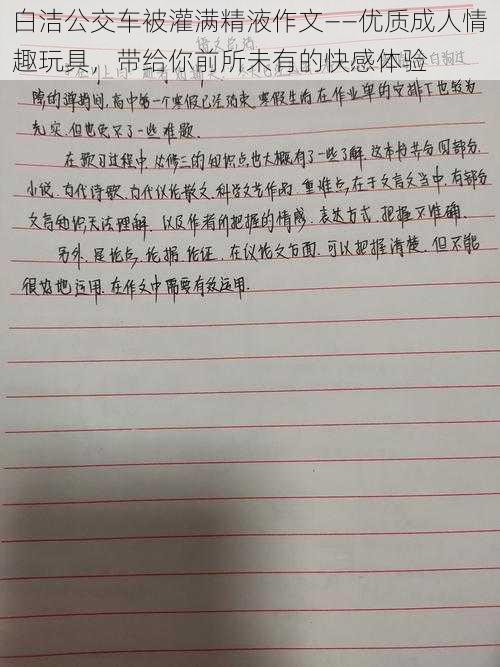 白洁公交车被灌满精液作文——优质成人情
趣玩具，带给你前所未有的快感体验
隙的弹指间,高中第一个寒假已经结束,寒假生活在作业单的安排下也较为
充实,但也更买了一些难题.
在预习过程中,必修三的知识点也大概有了一些了解.这本书共分四部分,
小说,古代诗歌,古代议论散文,科学文艺作品.重难点,在于文言文当中,有部分
文言知识无法理解.以及作者所把握的情感.表达方式,把握不准确.
另外,是论点,论据,论证.在议论文方面.可以把握清楚,但不能
很好地运用.在作文中需要有效运用.